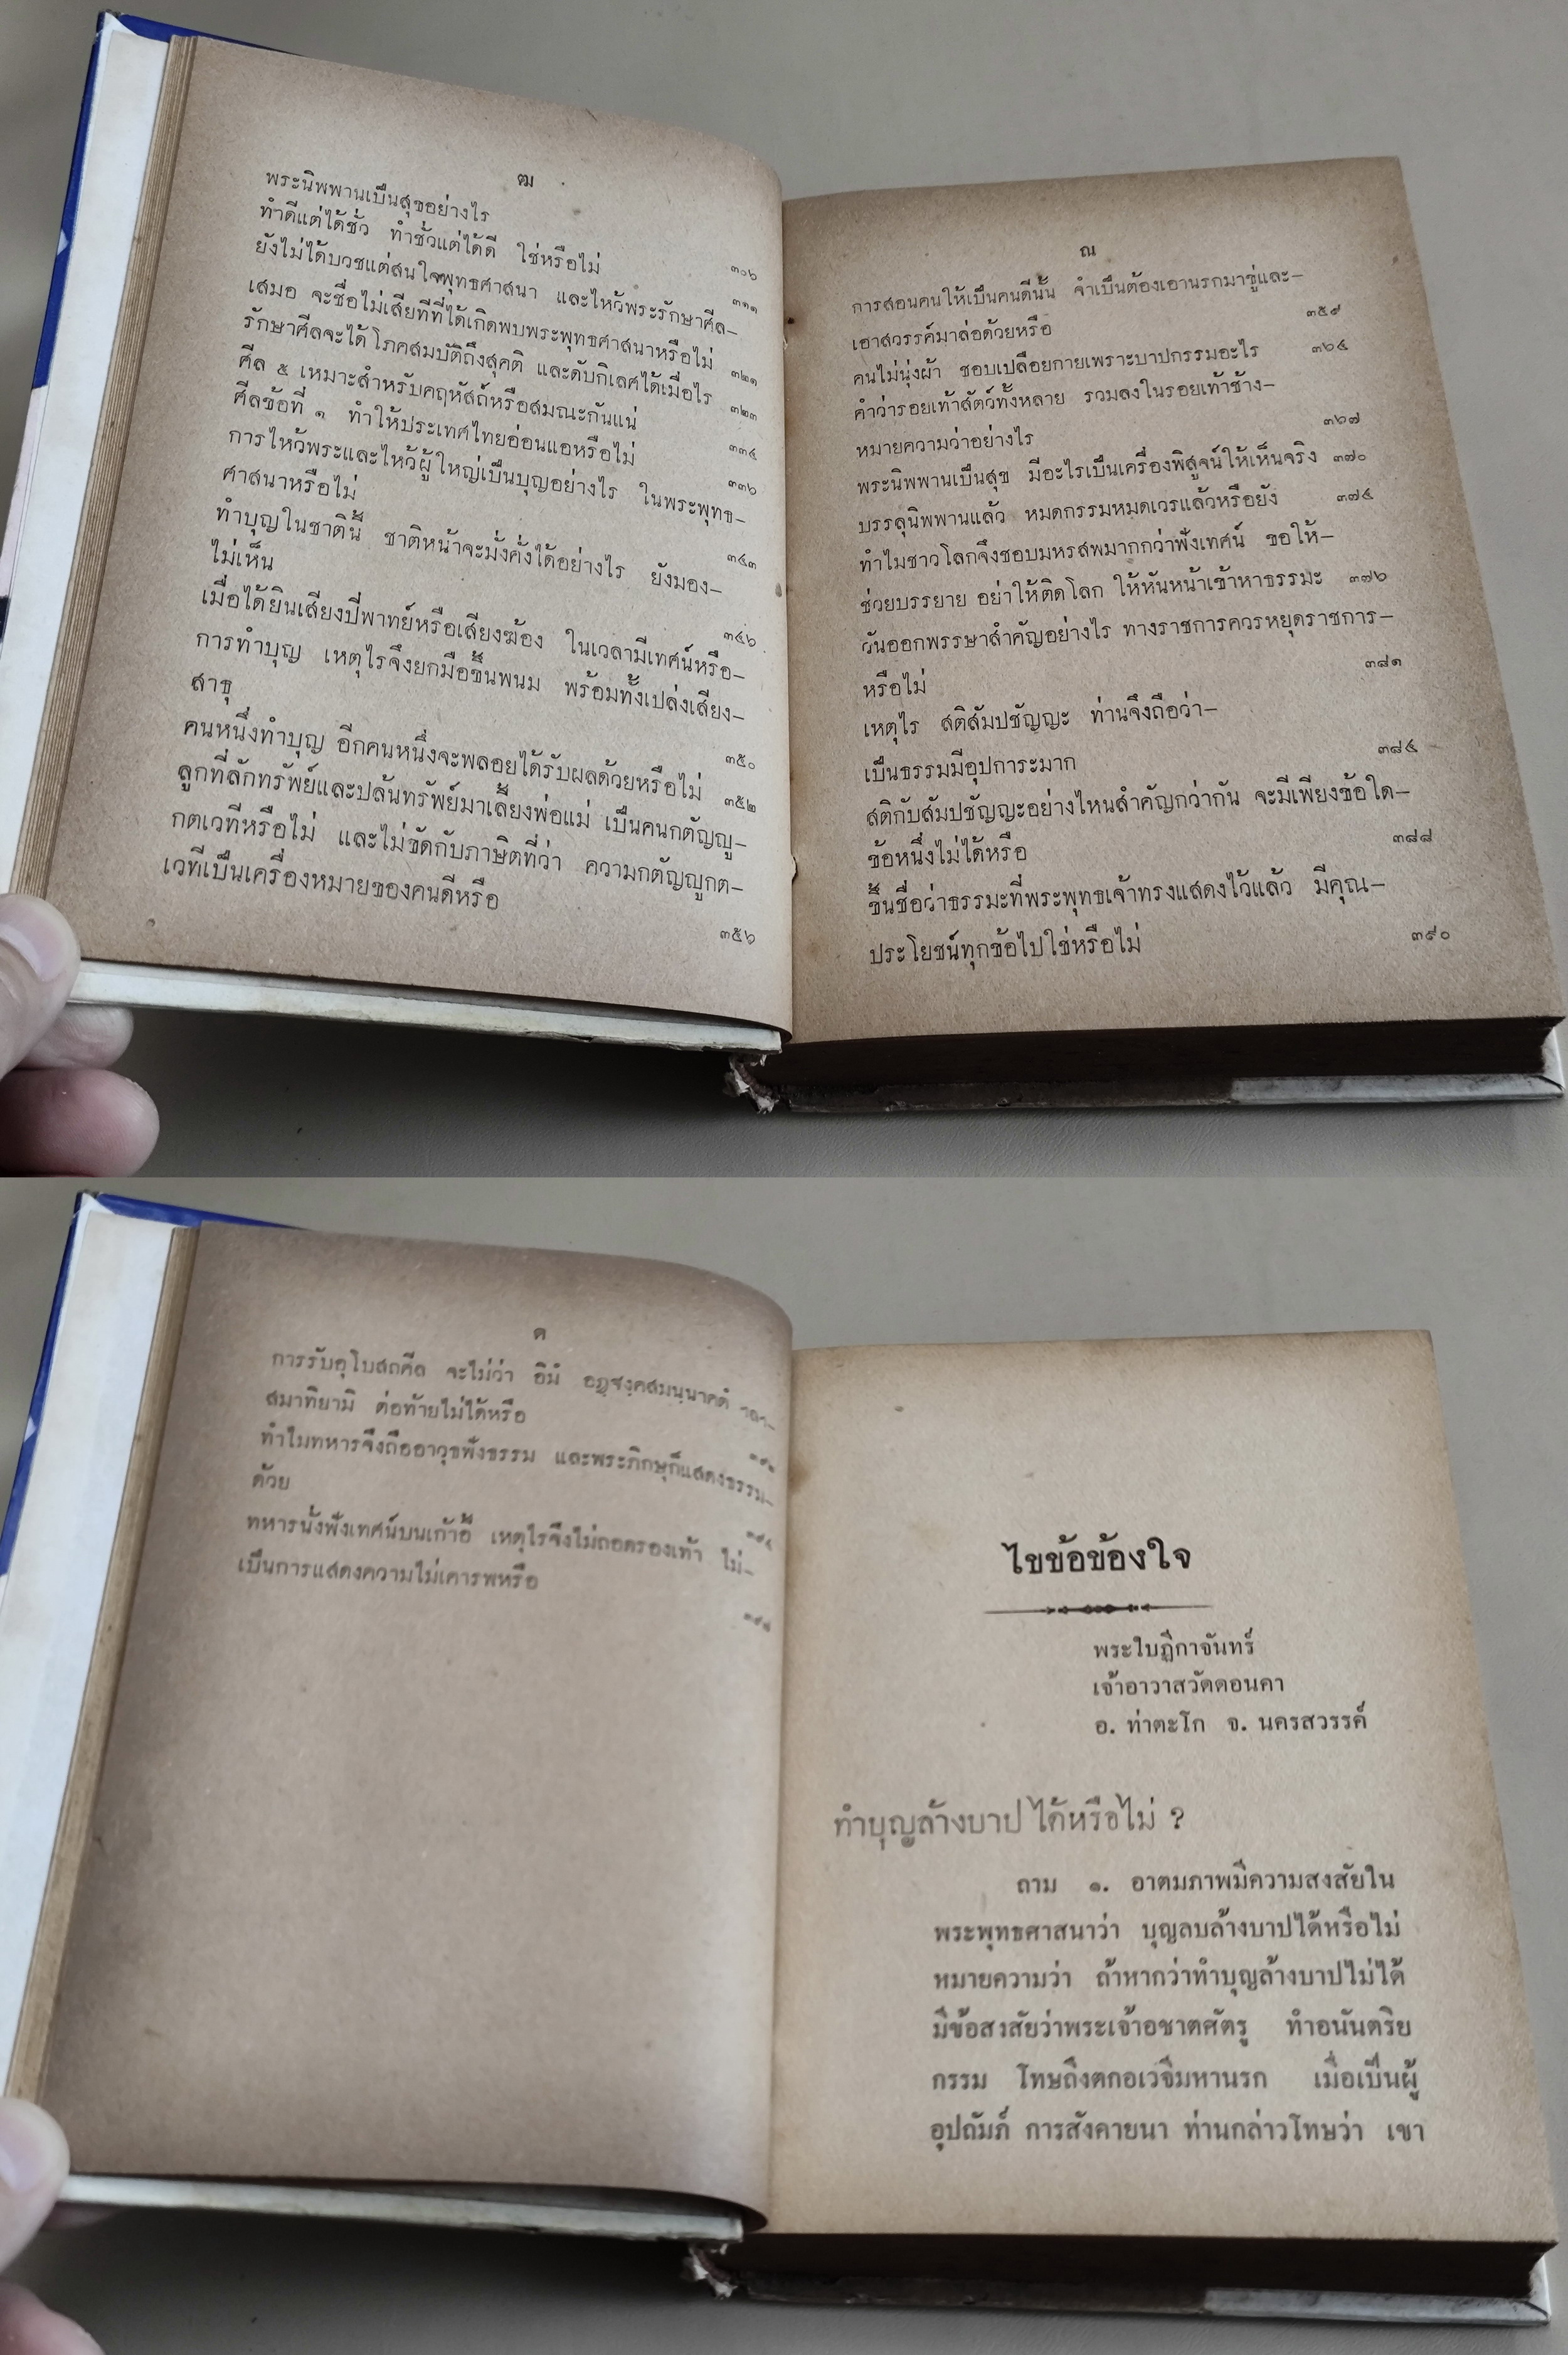 ฒ
พระนิพพานเป็นสุขอย่างไร ๓๐๖
ทำดีแต่ได้ชั่ว ทำชั่วแต่ได้ดี ใช่หรือไม่ ๓๑๑
ยังไม่ได้บวชแต่สนใจพุทธศาสนา และไหว้พระรักษาศีล–
เสมอ จะชื่อไม่เสียทีที่ได้เกิดพบพระพุทธศาสนาหรือไม่ ๓๒๑
รักษาศีลจะได้โภคสมบัติถึงสุคติ และดับกิเลศได้เมื่อไร ๓๒๓
ศีล ๕ เหมาะสำหรับคฤหัสถ์หรือสมณะกันแน่ ๓๓๔
ศีลข้อที่ ๑ ทำให้ประเทศไทยอ่อนแอหรือไม่ ๓๓๖
การไหว้พระและไหว้ผู้ใหญ่เป็นบุญอย่างไร ในพระพุทธ–
ศาสนาหรือไม่ ๓๔๓
ทำบุญในชาตินี้ ชาติหน้าจะมั่งคั่งได้อย่างไร ยังมอง–
ไม่เห็น ๓๔๖
เมื่อได้ยินเสียงปี่พาทย์หรือเสียงฆ้อง ในเวลามีเทศน์หรือ–
การทำบุญ เหตุไรจึงยกมือขึ้นพนม พร้อมทั้งเปล่งเสียง–
สาธุ ๓๕๐
คนหนึ่งทำบุญ อีกคนหนึ่งจะพลอยได้รับผลด้วยหรือไม่ ๓๕๒
ลูกที่ลักทรัพย์และปล้นทรัพย์มาเลี้ยงพ่อแม่ เป็นคนกตัญญู–
กตเวทีหรือไม่ และไม่ขัดกับภาษิตที่ว่า ความกตัญญูกต–
เวทีเป็นเครื่องหมายของคนดีหรือ ๓๕๖
ณ
การสอนคนให้เป็นคนดีนั้น จำเป็นต้องเอานรกมาขู่และ–
เอาสวรรค์มาล่อด้วยหรือ ๓๕๙
คนไม่นุ่งผ้า ชอบเปลือยกายเพราะบาปกรรมอะไร ๓๖๔
คำว่ารอยเท้าสัตว์ทั้งหลาย รวมลงในรอยเท้าช้าง–
หมายความว่าอย่างไร ๓๖๗
พระนิพพานเป็นสุข มีอะไรเป็นเครื่องพิสูจน์ให้เห็นจริง ๓๗๐
บรรลุนิพพานแล้ว หมดกรรมหมดเวรแล้วหรือยัง ๓๗๔
ทำไมชาวโลกจึงชอบมหรสพมากกว่าฟังเทศน์ ขอให้–
ช่วยบรรยาย อย่าให้ติดโลก ให้หันหน้าเข้าหาธรรมะ ๓๗๖
วันออกพรรษาสำคัญอย่างไร ทางราชการควรหยุดราชการ–
หรือไม่ ๓๘๑
เหตุไร สติสัมปชัญญะ ท่านจึงถือว่า–
เป็นธรรมมีอุปการะมาก ๓๘๔
สติกับสัมปชัญญะอย่างไหนสำคัญกว่ากัน จะมีเพียงข้อใด–
ข้อหนึ่งไม่ได้หรือ ๓๘๘
ขึ้นชื่อว่าธรรมะที่พระพุทธเจ้าทรงแสดงไว้แล้ว มีคุณ–
ประโยชน์ทุกข้อไปใช่หรือไม่ ๓๙๐
ด
การรับอุโบสถศีล จะไม่ว่า อิมํ อฏฺฐงฺคสมนฺนาคตํ
สมาทิยามิ ต่อท้ายไม่ได้หรือ
ทำไมทหารจึงถืออาวุธฟังธรรม และพระภิกษุก็แสดงธรรม–
ด้วย
ทหารนั่งฟังเทศน์บนเก้าอี้ เหตุไรจึงไม่ถอดรองเท้า ไม่–
เป็นการแสดงความไม่เคารพหรือ
ไขข้อข้องใจ
พระใบฎีกาจันทร์
เจ้าอาวาสวัดดอนคา
อ. ท่าตะโก จ. นครสวรรค์
ทำบุญล้างบาปได้หรือไม่ ?
ถาม ๑. อาตมภาพมีความสงสัยใน
พระพุทธศาสนาว่า บุญลบล้างบาปได้หรือไม่
หมายความว่า ถ้าหากว่าทำบุญล้างบาปไม่ได้
มีข้อสงสัยว่าพระเจ้าอชาตศัตรู ทำอนันตริย
กรรม โทษถึงตกอเวจีมหานรก เมื่อเป็นผู้
อุปถัมภ์ การสังคายนา ท่านกล่าวโทษว่า เขา